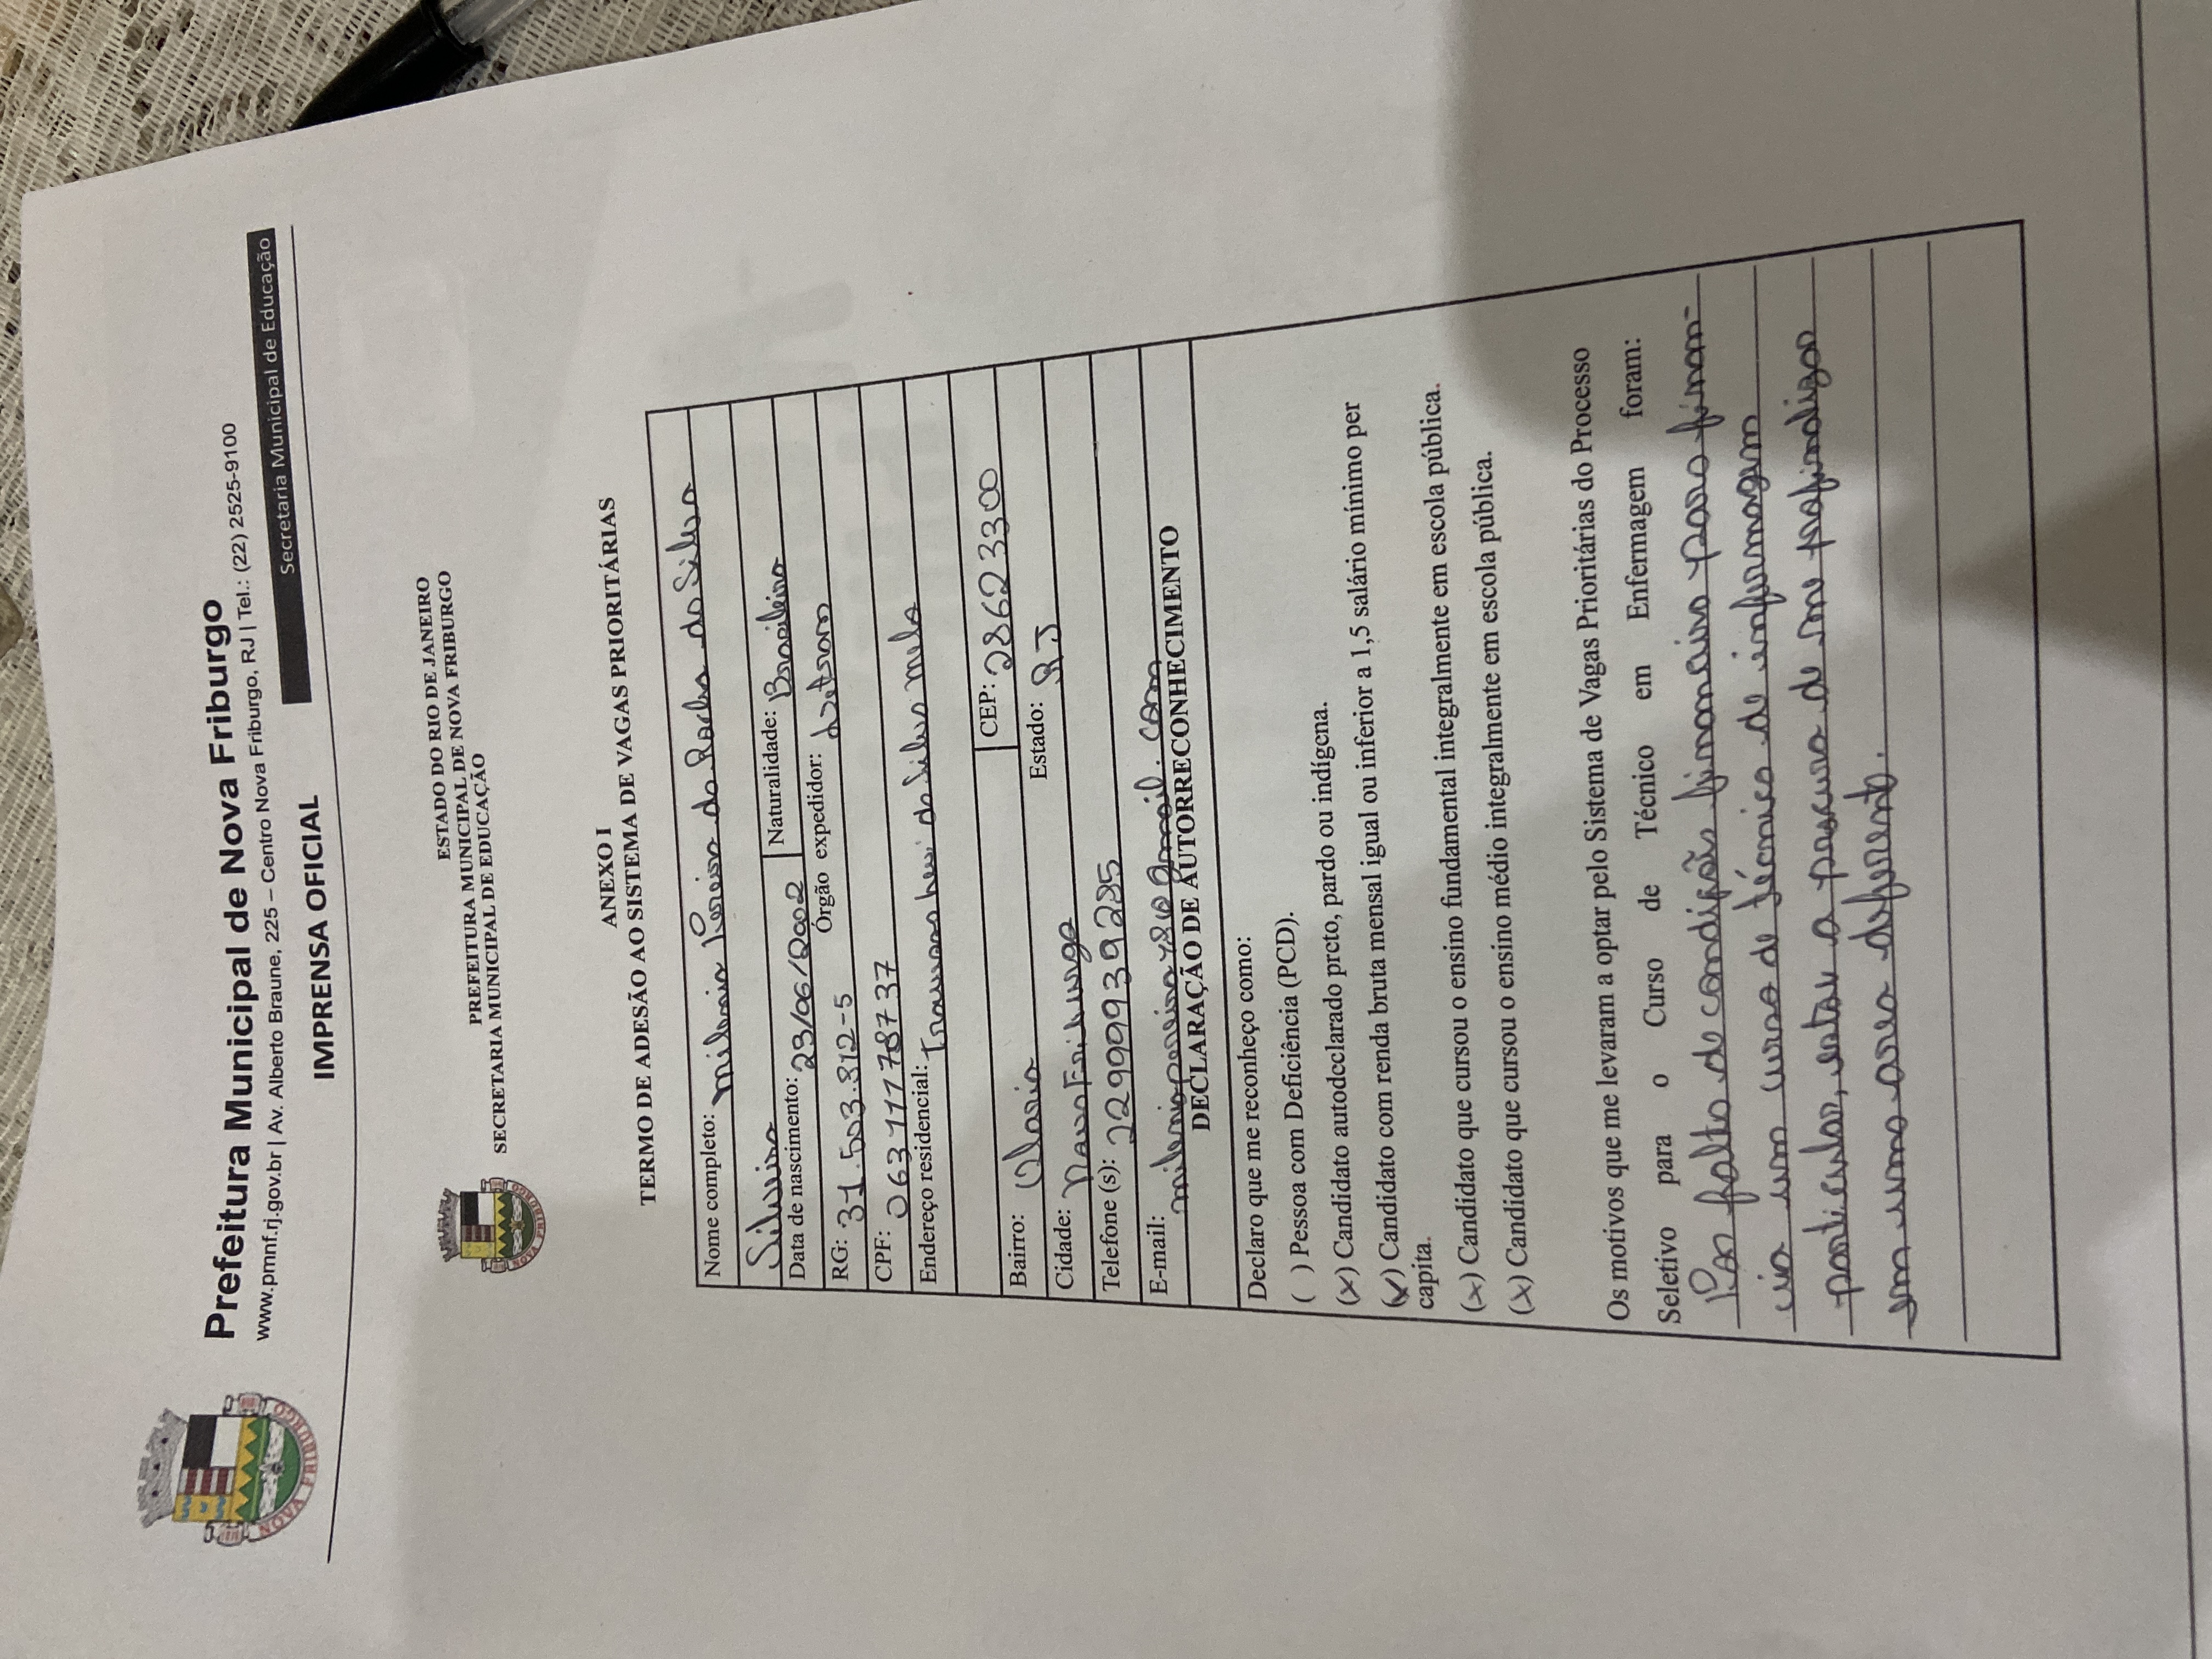 Prefeitura Municipal de Nova Friburgo
www.pmnf.rj.gov.br | Av. Alberto Braune, 225 – Centro Nova Friburgo, RJ | Tel.: (22) 2525-9100
Secretaria Municipal de Educação
IMPRENSA OFICIAL
NOVA FRIBURGO
ESTADO DO RIO DE JANEIRO
PREFEITURA MUNICIPAL DE NOVA FRIBURGO
SECRETARIA MUNICIPAL DE EDUCAÇÃO
NOVA FRIBURGO
ANEXO I
TERMO DE ADESÃO AO SISTEMA DE VAGAS PRIORITÁRIAS
Nome completo: milenia Pereira da Rocha da Silva
Silveira
Data de nascimento: 23/06/2002 Naturalidade: Brasileira
RG: 31.503.812-5 Órgão expedidor: Detran
CPF: 06311178737
Endereço residencial: Travessa Levi da Silva melo
Bairro: Olaria CEP: 28623300
Cidade: Nova Friburgo Estado: RJ
Telefone (s): 22999939285
E-mail:
DECLARAÇÃO DE AUTORRECONHECIMENTO
Declaro que me reconheço como:
( ) Pessoa com Deficiência (PCD).
(x) Candidato autodeclarado preto, pardo ou indígena.
(x) Candidato com renda bruta mensal igual ou inferior a 1,5 salário mínimo per
capita.
(x) Candidato que cursou o ensino fundamental integralmente em escola pública.
(x) Candidato que cursou o ensino médio integralmente em escola pública.
Os motivos que me levaram a optar pelo Sistema de Vagas Prioritárias do Processo
Seletivo para o Curso de Técnico em Enfermagem foram:
Por falta de condição financeira para finan-
cia um curso de técnico de infermagem
particular, estou a procura de me profinalizar
em uma area deferente.